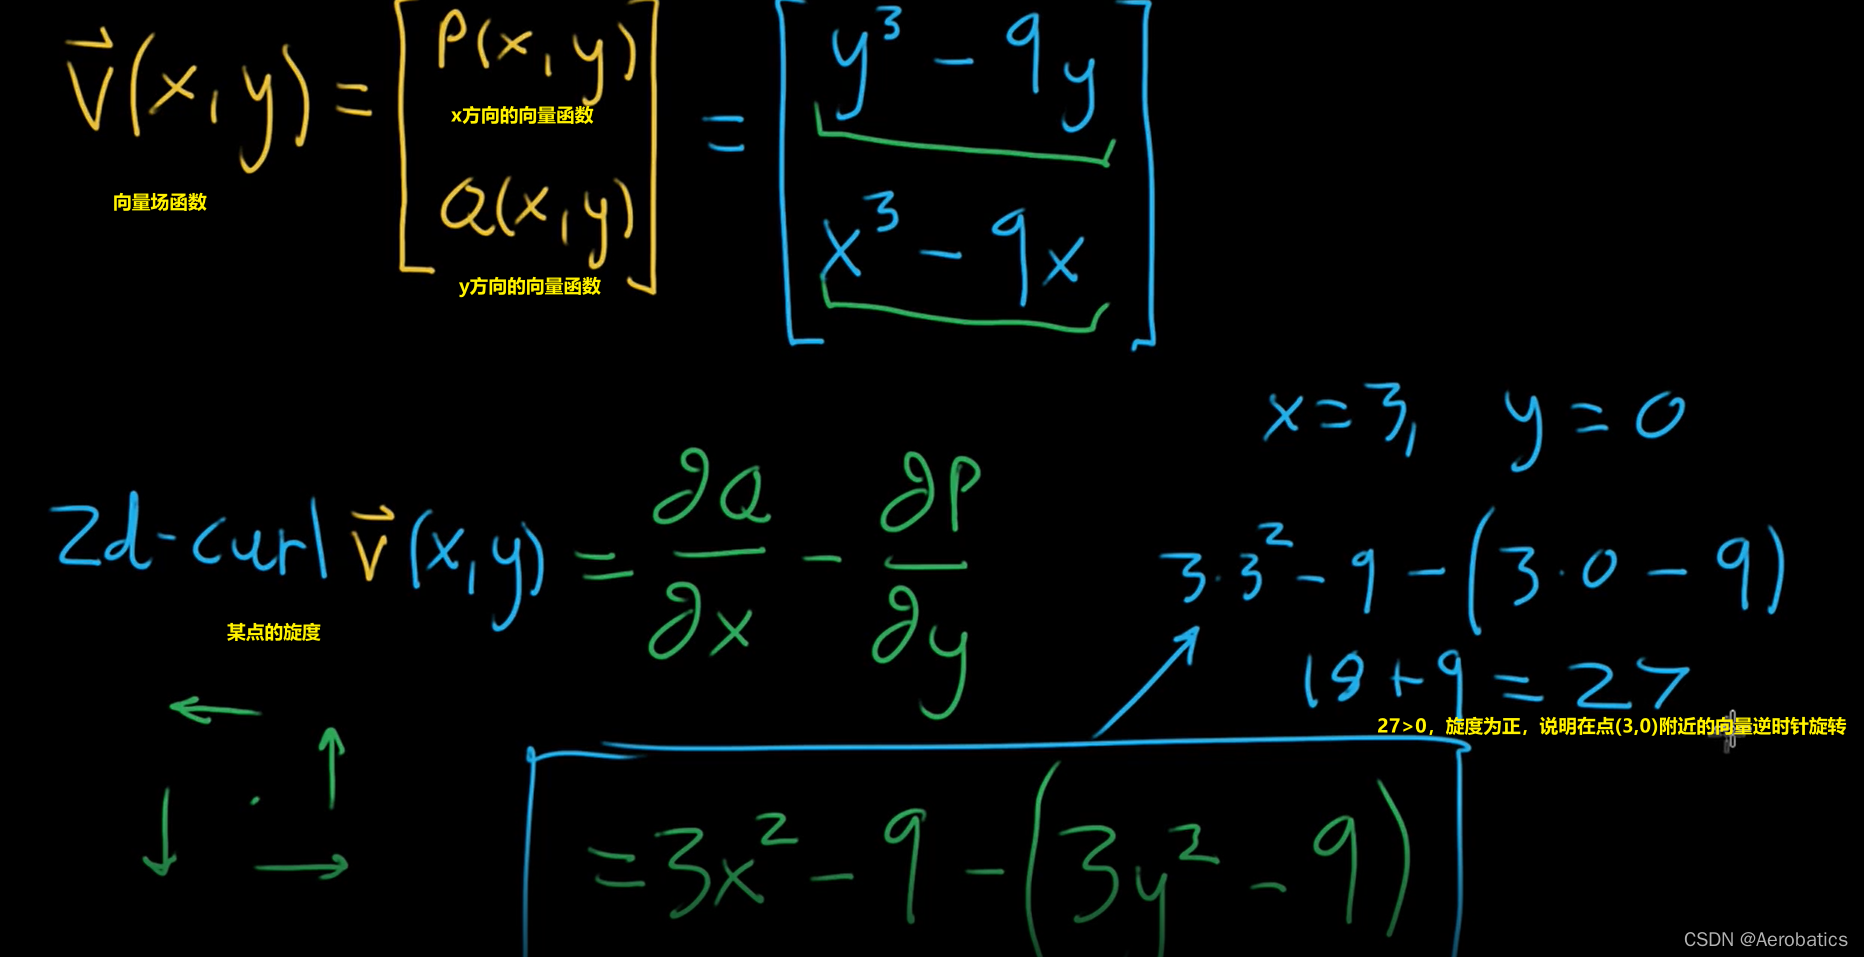 v⃗(x,y) = [P(x,y) Q(x,y)] = [y³ - 9y x³ - 9x]
x方向的向量函数
向量场函数
y方向的向量函数
x=3, y=0
2d-curl v⃗(x,y) = ∂Q/∂x - ∂P/∂y
3·3² - 9 - (3·0 - 9)
某点的旋度
18+9 = 27
27>0，旋度为正，说明在点(3,0)附近的向量逆时针旋转
=3x² - 9 - (3y² - 9)
CSDN @Aerobatics